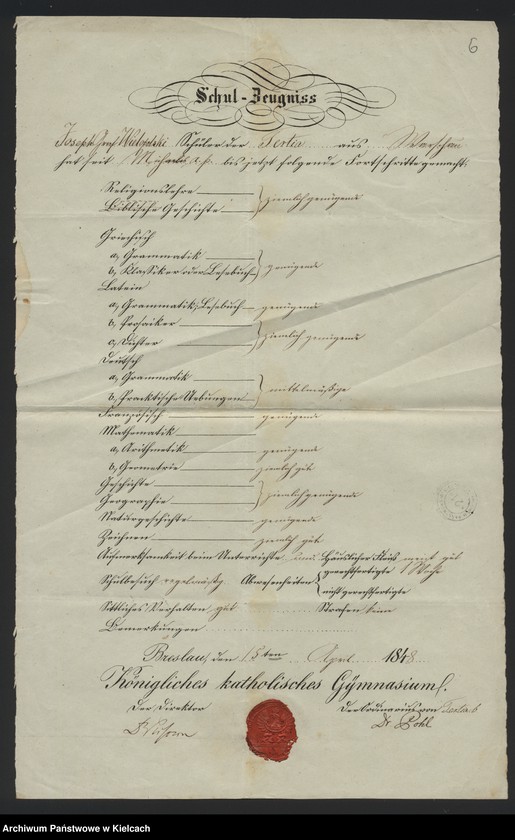 6
Schul-Zeugniss
Joseph Graf Wielopolski Schüler der Tertia aus Warschau
hat seit bis jetzt folgende Fortschritte gemacht:
Religionslehre
Biblische Geschichte } ziemlich genügend
Griechisch
a, Grammatik
b, Klassiker oder Lesebuch } genügend
Latein
a, Grammatik, Lesebuch genügend
b, Prosaiker
c, Dichter } ziemlich genügend
Deutsch
a, Grammatik
b, Practische Uebungen } mittelmäßig
Französisch genügend
Mathematik
a, Arithmetik genügend
b, Geometrie ziemlich gut
Geschichte
Geographie } ziemlich genügend
Naturgeschichte genügend
Zeichnen ziemlich gut
Aufmerksamkeit beim Unterrichte und häuslicher Fleis meist gut
Schulbesuch regelmäßig Abwesenheiten { gerechtfertigte 1 Woche
nicht gerechtfertigte
Sittliches Verhalten gut Strafen keine
Bemerkungen
Breslau, den 15ten April 1848
Königliches katholisches Gÿmnasium.
Der Direktor Der Ordinarius von Tertia b
Dr Wissowa Dr. Pohl
Archiwum Państwowe w Kielcach